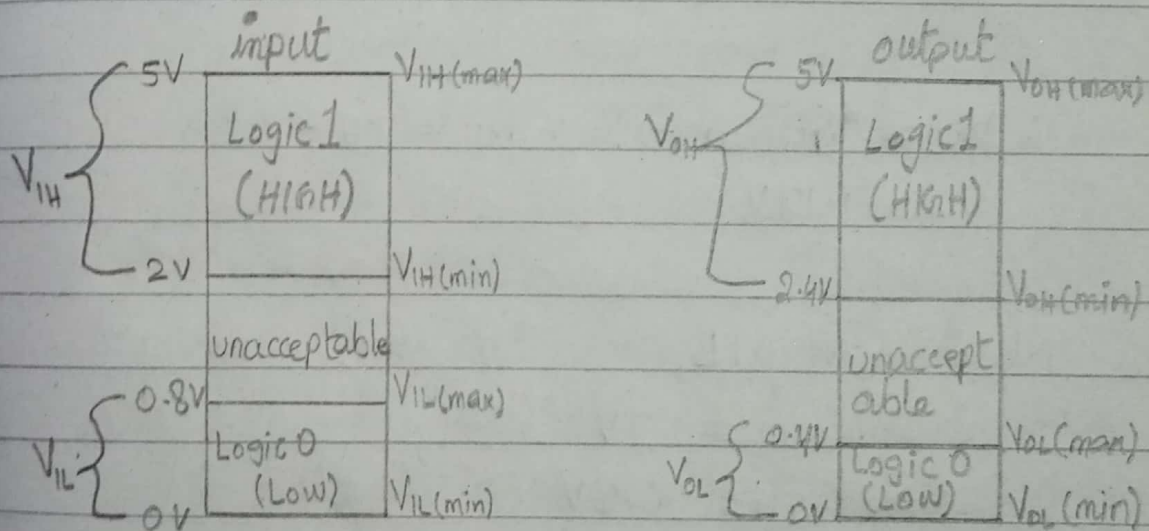 input
5V
V_IH(max)
Logic 1
(HIGH)
V_IH
2V
V_IH(min)
unacceptable
0.8V
V_IL(max)
Logic 0
(Low)
V_IL
0V
V_IL(min)
output
5V
V_OH(max)
Logic 1
(HIGH)
V_OH
2.4V
V_OH(min)
unaccept
able
0.4V
V_OL(max)
Logic 0
(Low)
V_OL
0V
V_OL(min)